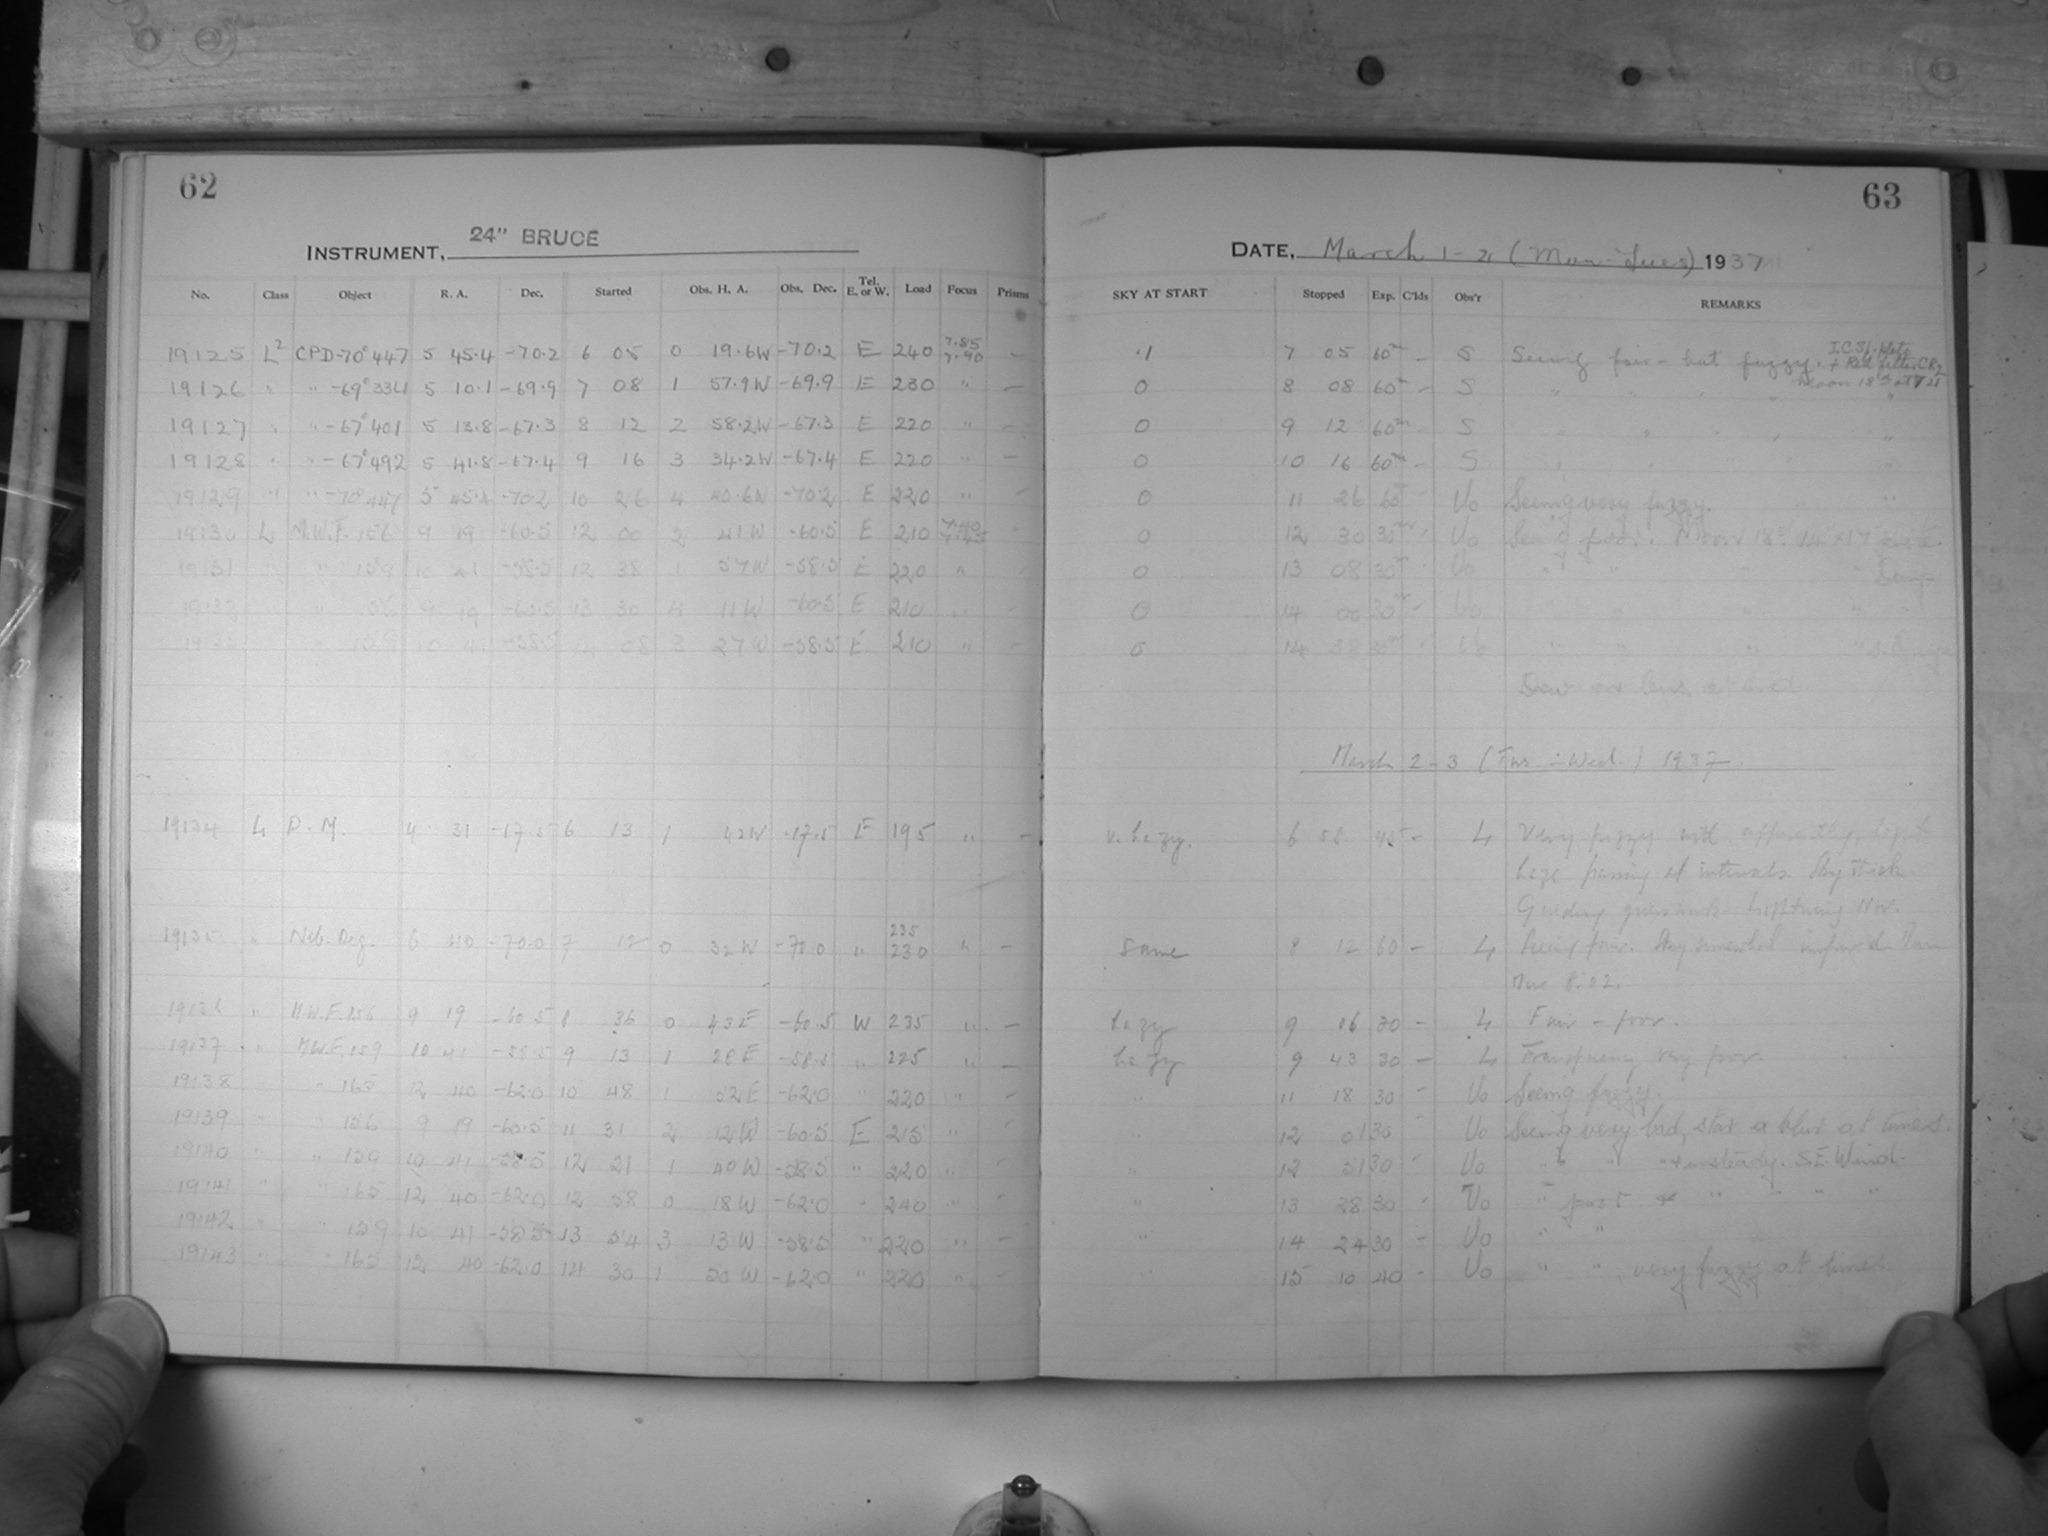 62
INSTRUMENT, 24" BRUCE
No. Class Object R. A. Dec. Started Obs. H. A. Obs. Dec. Tel. E. or W. Load Focus Prisms
19125 L² CPD-70°447 5 45.4 -70.2 6 05 0 19.6W -70.2 E 240 7.85 7.90 -
19126 " " -69°334 5 10.1 -69.9 7 08 1 57.9W -69.9 E 230 " -
19127 " " -67°401 5 13.8 -67.3 8 12 2 58.2W -67.3 E 220 " -
19128 " " -67°492 5 41.8 -67.4 9 16 3 34.2W -67.4 E 220 " -
19129 " " -70°447 5 45.4 -70.2 10 26 4 40.6W -70.2 E 220 " -
19130 L M.W.F. 156 9 19 -60.5 12 00 2 41W -60.5 E 210 -
19131 " " 159 10 41 -58.5 12 38 1 57W -58.5 E 220 " -
19132 " 156 9 19 -60.5 13 30 4 11W -60.5 E 210 " -
19133 " 159 10 41 -58.5 14 08 3 27W -58.5 E 210 " -
19134 L D.M. 4 31 -17.5 6 13 1 42W -17.5 E 195 " -
19135 " Neb. Deg. 6 40 -70.0 7 12 0 32W -70.0 " 235 230 " -
19136 " M.W.F. 156 9 19 -60.5 8 36 0 43E -60.5 W 235 " -
19137 " M.W.F. 159 10 41 -58.5 9 13 1 28E -58.5 " 225 " -
19138 " " 165 12 40 -62.0 10 48 1 52E -62.0 " 220 " -
19139 " " 156 9 19 -60.5 11 31 2 12W -60.5 E 215 " -
19140 " " 159 10 41 -58.5 12 21 1 40W -58.5 " 220 " -
19141 " " 165 12 40 -62.0 12 58 0 18W -62.0 " 240 " -
19142 " " 159 10 41 -58.5 13 54 3 13W -58.5 " 220 " -
19143 " " 165 12 40 -62.0 14 30 1 50W -62.0 " 220 " -
63
DATE, March 1-2 (Mon-Tues) 1937
SKY AT START Stopped Exp. C'lds Obs'r REMARKS
.1 7 05 60m - S Seeing fair - but fuzzy. I.C.Sp. Plate + Red filter.
0 8 08 60m - S " " " " Moon 18
0 9 12 60m - S " " " " "
0 10 16 60m - S " " " "
0 11 26 60m - Vo Seeing very fuzzy. "
0 12 30 30m - Vo Seeing poor. Moon
0 13 08 30m - Vo " " " "
0 14 00 30m - Vo " " " "
0 14 38 30m - Vo " " " "
Dew on lens at end.
March 2-3 (Tues-Wed.) 1937
v. hazy. 6 58 45 - L Very fuzzy with apparently light
haze passing at intervals. Sky thick.
Guiding guesswork. Lightning Nor.
Same 8 12 60 - L Seeing fair. Sky somewhat
8.02.
hazy 9 06 30 - L Fair - poor.
hazy 9 43 30 - L Transparency very poor.
" 11 18 30 - Vo Seeing fuzzy.
" 12 01 30 - Vo Seeing very bad, star a blur at times.
" 12 51 30 - Vo " " " + unsteady. S.E. Wind.
" 13 28 30 - Vo " poor + " " " "
" 14 24 30 - Vo " "
" 15 10 40 - Vo " " , very fuzzy at times.